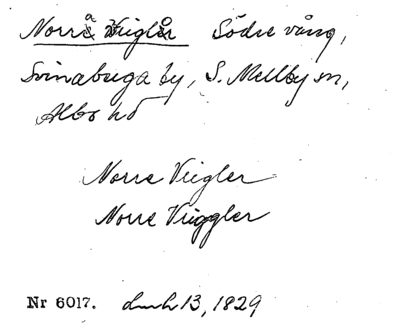 Norrå Viglår Södre vång,
Svinaberga by, S. Mellby sn,
Albo hd
Norre Viegler
Norre Vieggler
Nr 6017. 13, 1829